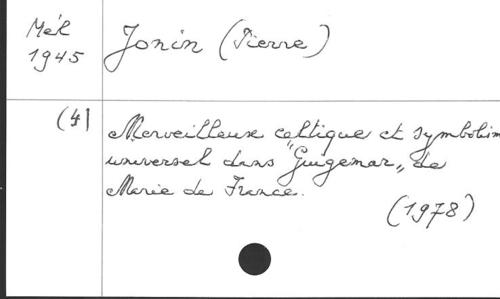 Mél
1945
Jonin (Pierre)
(4)
Merveilleux celtique et symbolism
universel dans "Guigemar" de
Marie de France.
(1978)